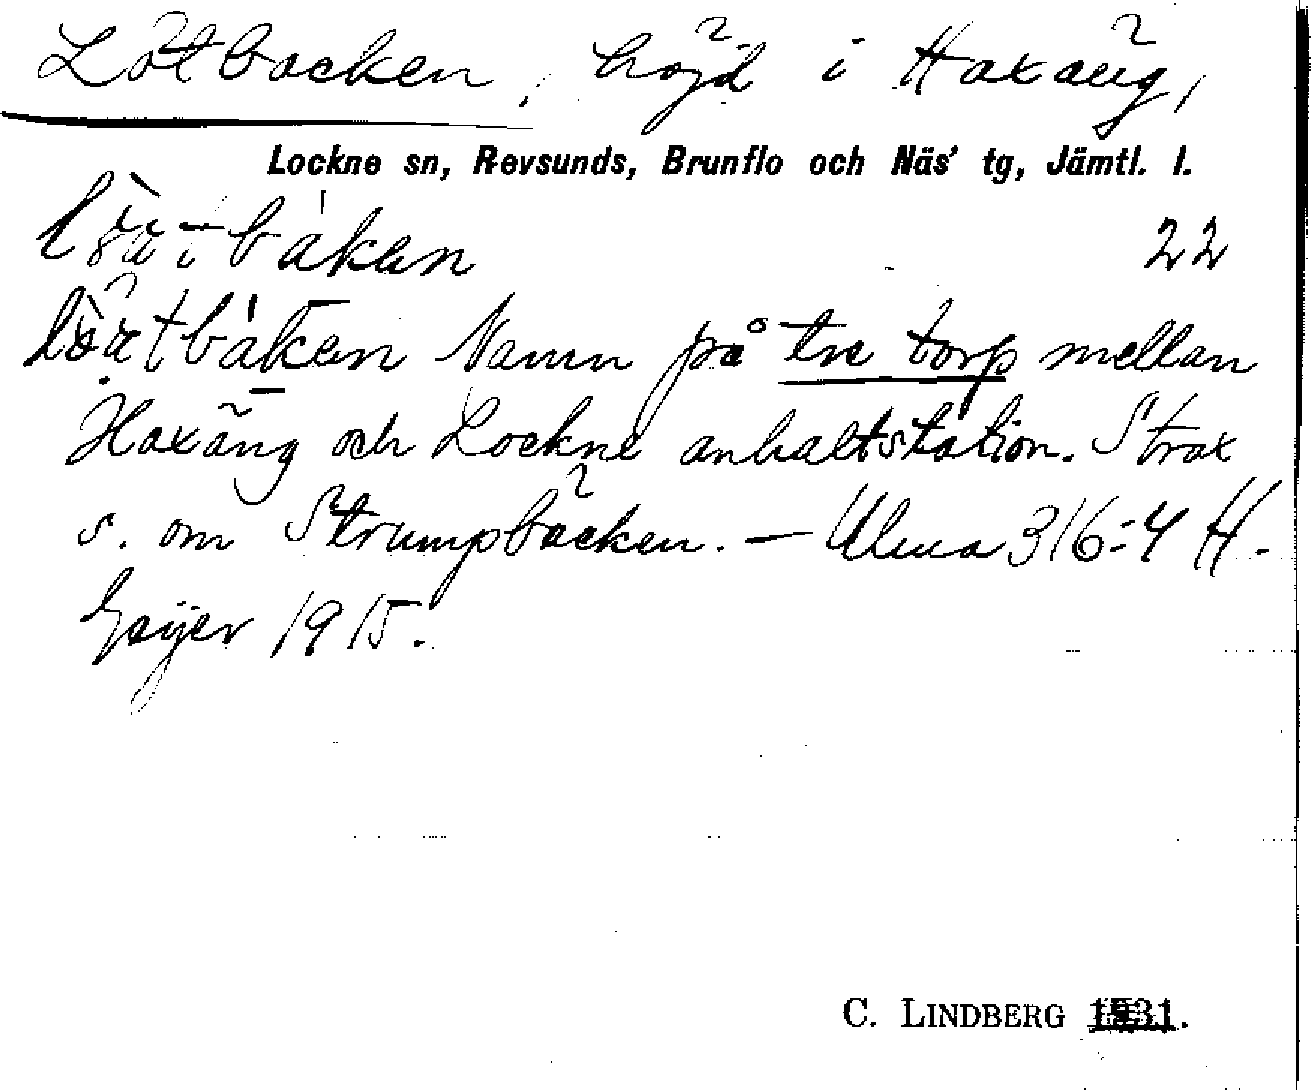 Lötbacken, höjd i Haxäng,
Lockne sn, Revsunds, Brunflo och Näs' tg, Jämtl. l.
22
Namn på tre torp mellan
Haxäng och Lockne anhaltstation. Strax
s. om Strumpbacken. — Ulma 316:4 H.
Geijer 1915.
C. LINDBERG 1931.